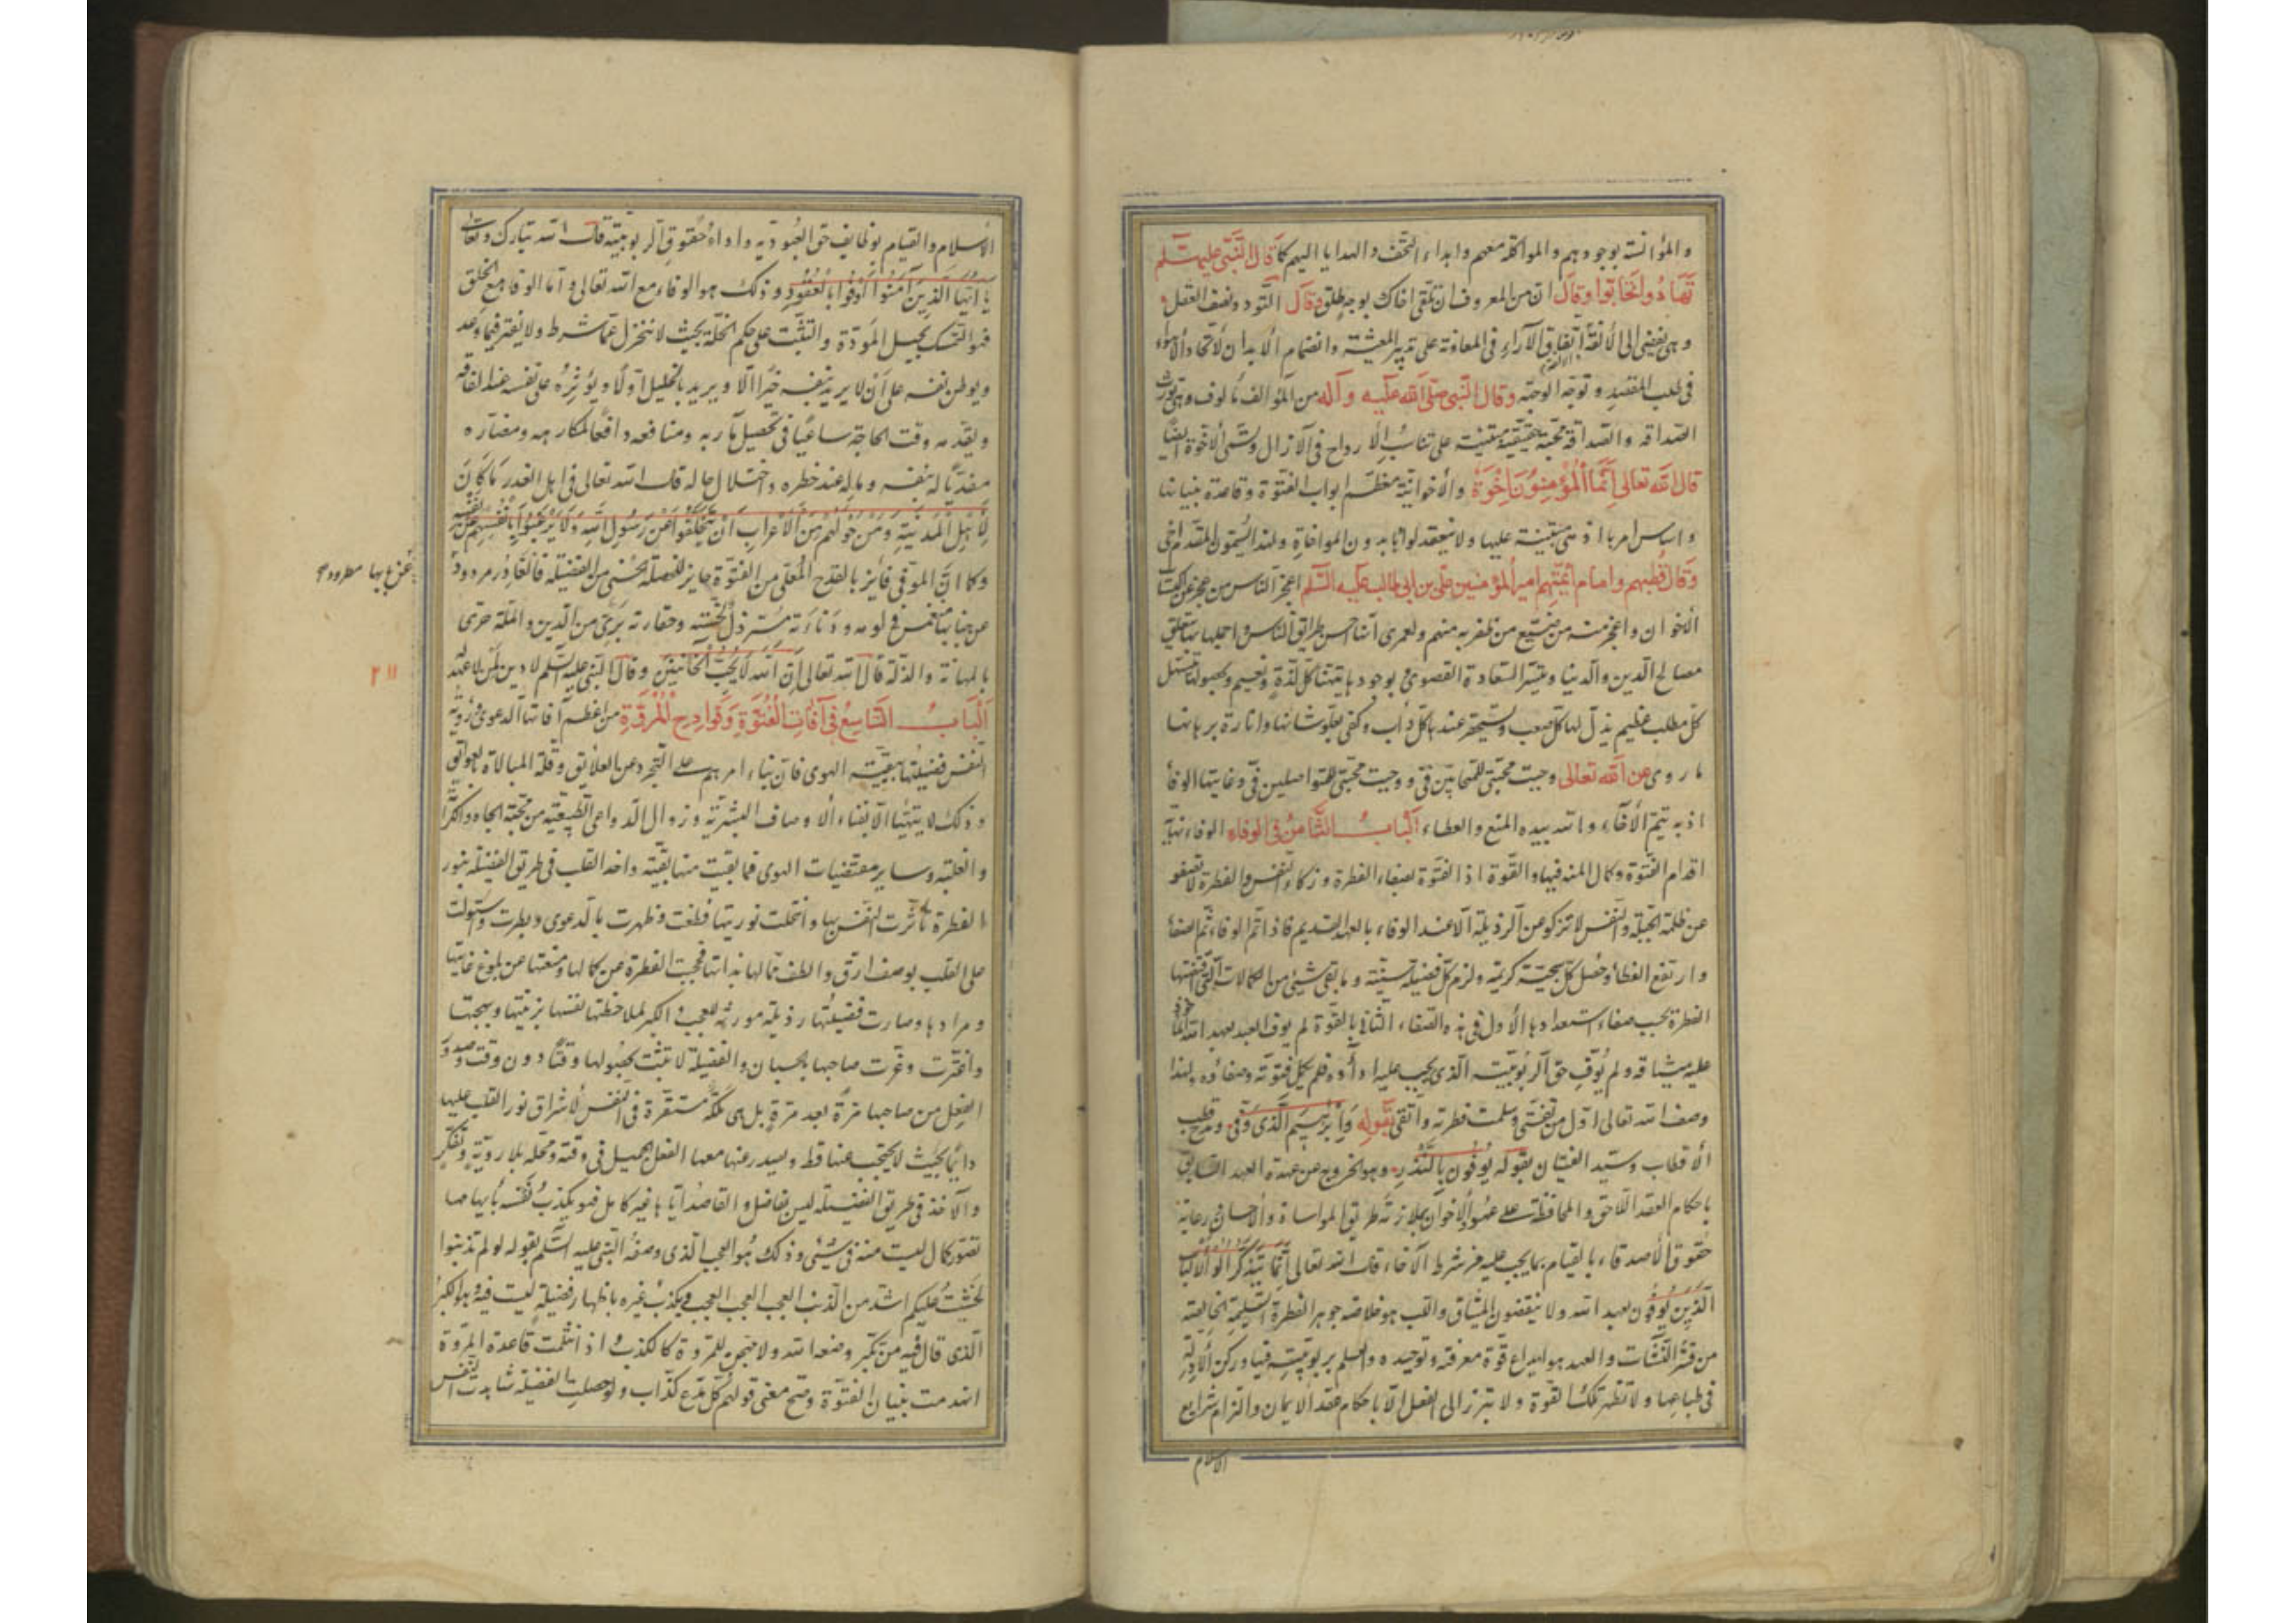 والمؤانسة بوجودهم والمواكلة معهم وابداء التحف والهدايا اليهم كما قَالَ النَّبِيُّ عليه السّلم
تَهَادُوا تَحَابُّوا وقَالَ ان من المعروف ان تلقى اخاك بوجه طلق وقَالَ التودد ونصف العقل
وهى يفضى الى الألفة اتفاق الآراء فى المعاونة على تدبير المعيشة وانضمام الأبدان لاتحاد الأهواء
فى طلب المقصد وتوجّه الوجهة وقال النّبى صلّى الله عليه وآله من المؤالف مألوف وهى تورث
الصداقة والصداقة محبّة حقيقيّة مبتنية على تناسب الأرواح فى الآزال وتسمّى الأخوة ايضًا
قال الله تعالى اِنَّمَا الْمُؤْمِنُونَ اِخْوَةٌ والأخوانيّة معظم ابواب الفتوّة وقاعدة بنيانها
واساس امرها اذ هى مبتنية عليها ولا ينعقد لواؤها بدون المواخاة ولهذا يسمّون المقدّم اخى
وقال قطبهم وامام ائمّتهم امير المؤمنين علىّ بن ابى طالب عليه السّلم اعجز الناس من عجز عن اكتساب
الأخوان واعجز منه من ضيّع من ظفر به منهم ولعمرى انها احسن طرايق الناس واجملها بها يتعلّق
مصالح الدين والدنيا ويتيسّر السّعادة القصوى بوجودها يتهنّأ كلّ لذّة ونعيم وبحصولها يستهل
كلّ مطلب عظيم يذلّ لها كلّ صعب ويستحقر عندها كلّ دأب وكفى بعلوّ شانها وانارة برهانها
ما روى عن الله تعالى وجبت محبّتى للمتحابّين فىّ ووجبت محبّتى للمتواصلين فىّ وغايتها الوفا
اذ به يتمّ الآخاء والله بيده المنع والعطاء الْبَابُ الثَّامِنُ فى الوفاءِ الوفاء نهاية
اقدام الفتوّة وكمال المنه فيها والقوّة اذ الفتوّة بصفاء الفطرة وزكاء النفس والفطرة لا تصفو
عن ظلمة الجبلّة والنفس لا تزكو من الرذيلة الّا عند الوفاء بالعهد القديم فاذا تمّ الوفاء تمّ الصفا
وارتفع الغطاء وحصل كلّ سجيّة كريمة ولزم كلّ فضيلة سنيّة وما بقى شئ من الكمالات التى اقتضتها
الفطرة بحسب صفاء استعدادها الأول فى هذه الصفاء الثانى بالقوة لم يوف العبد بعهد الله المأخوذ
عليه ميثاقه ولم يُوَفِّ حق الربوبيّة الّذى يجب عليه اداؤه فلم يكمل فتوّته وصفاؤه ولهذا
وصف الله تعالى اوّل من تفتّى وسلمت فطرته واتّقى بقوله وَاِبْرٰهِيمَ الَّذِى وَفّى ومدح قطب
الأقطاب وسيّد الفتيان بقوله يُوفُونَ بِالنَّذْرِ وهو الخروج عن عهدة العهد السابق
باحكام العقد اللّاحق والمحافظة على عهود الأخوان بملازمة طريق المواساة والأحسان ورعاية
حقوق الأصدقاء بالقيام بما يجب عليه من شرط الآخاء قال الله تعالى اِنَّمَا يَتَذَكَّرُ اُولُوا الْاَلْبَاب
الَّذِينَ يُوفُونَ بعهد الله ولا ينقضون الميثاق واللب هو خلاصة جوهر الفطرة السّليمة الخالصة
من قشر النشآت والعهد هو ايداع قوة معرفته وتوحيده والعلم بربوبيّته فيها وركن الأدلة
فى طباعها ولا تظهر تلك القوّة ولا تبرز الى الفعل الّا باحكام عقد الايمان والتزام شرايع
الاسلام
الأسلام والقيام بوظايف حق العبوديّة واداء حقوق الربوبيّة قال الله تبارك وتعالى
يَا اَيُّهَا الَّذِينَ آمَنُوا اَوْفُوا بِالْعُقُودِ وذلك هو الوفاء مع الله تعالى وامّا الوفاء مع الخلق
فهو التمسّك بحبل المودّة والتثبّت على حكم الخلّة بحيث لا ينخزل عمّا شرط ولا يفتر فيما وعد
ويوطن نفسه على أن لا يريد بنفسه خيرًا الّا ويريد بالخليل اوّلًا ويؤثِرُه على نفسه عند الفاقه
ويقدّمه وقت الحاجة ساعيًا فى تحصيل مآربه ومنافعه دافعًا لمكارهه ومضارّه
مفديًا له بنفسه وماله عند خطره واختلال حاله قال الله تعالى فى اهل الغدر مَا كَانَ
لِأَهْلِ الْمَدِينَةِ وَمَنْ حَوْلَهُمْ مِنَ الْاَعْرَابِ اَنْ يَتَخَلَّفُوا عَنْ رَسُولِ اللهِ وَلَا يَرْغَبُوا بِاَنْفُسِهِمْ عَنْ نَفْسِه
وكما انّ الموفى فايز بالقدح المعلّى من الفتوّة حايز للخصلة الحسنى من الفضيلة فالغادر مردود
عن جنابها منغمس فى لومه ودناءته مسترذل لخسّته وحقارته برئ من الدين والملّة حرى
بالمهانة والذلّة قال الله تعالى اِنَّ اللهَ لَا يُحِبُّ الْخَائِنِينَ وقال النبى عليه السّلم لا دين لمن لا عهد له
اَلْبَابُ التَّاسِعُ فى آفَاتِ الْفُتُوَّةِ وَقَوَادِحِ الْمُرُوَّةِ من اعظم آفاتها الدعوى ورؤية
النفس فضيلتها ببقيّة الهوى فان بناء امرهم على التجرد عن العلايق وقلّة المبالاة بالعوايق
وذلك لا يتهيّا الّا بفناء الأوصاف البشريّة وزوال الدواعى الطبيعيّة من محبّة الجاه والكرامة
والغلبة وساير مقتضيات الهوى فما بقيت منها بقيّة واخذ القلب فى طريق الفضيلة بنور
الفطرة تأثّرت النفس بها وانتحلت نوريتها فطغت وظهرت بالدعوى وبطرت واستولت
على القلب بوصف ارقّ والطف ممّا لها بذاتها فحجبت الفطرة عن كمالها ومنعتها عن بلوغ غايتها
ومرادها وصارت فضيلتُها رذيلة مورثة للعجب والكبر لملاحظتها نفسها بزينتها وبهجتها
واغترّت وغرّت صاحبها بالحسبان والفضيلة لا تثبت بحصولها وقتًا دون وقت وصدور
الفعل من صاحبها مرّة بعد مرّة بل هى ملكة مستقرّة فى النفس لأشراق نور القلب عليها
دائمًا بحيث لا يحتجب عنها قط ويصدر عنها معها الفعل الجميل فى وقته ومحلّه بلا رويّة وتفكّر
والآخذ فى طريق الفضيلة ليس بفاضل والقاصد ايّاها غير كامل فهو يكذب نفسه بأيهامها
تصوّر كمال ليست منه فى شئ وذلك هو العجب الذى وصفه النّبى عليه السّلم بقوله لو لم تذنبوا
لخشيت عليكم اشدّ من الذنب العجب العجب العجب ويكذب غيره باظهار فضيلة ليست فيه وهو الكبر
الّذى قال فيه من تكبّر وضعه الله ولا مخجن للمروة كالكذب اذ انثلمت قاعدة المروة
انهدمت بنيان الفتوّة وصحّ معنى قولهم كلّ مدّع كذّاب ولو حصلت الفضيلة شاهدت النفس